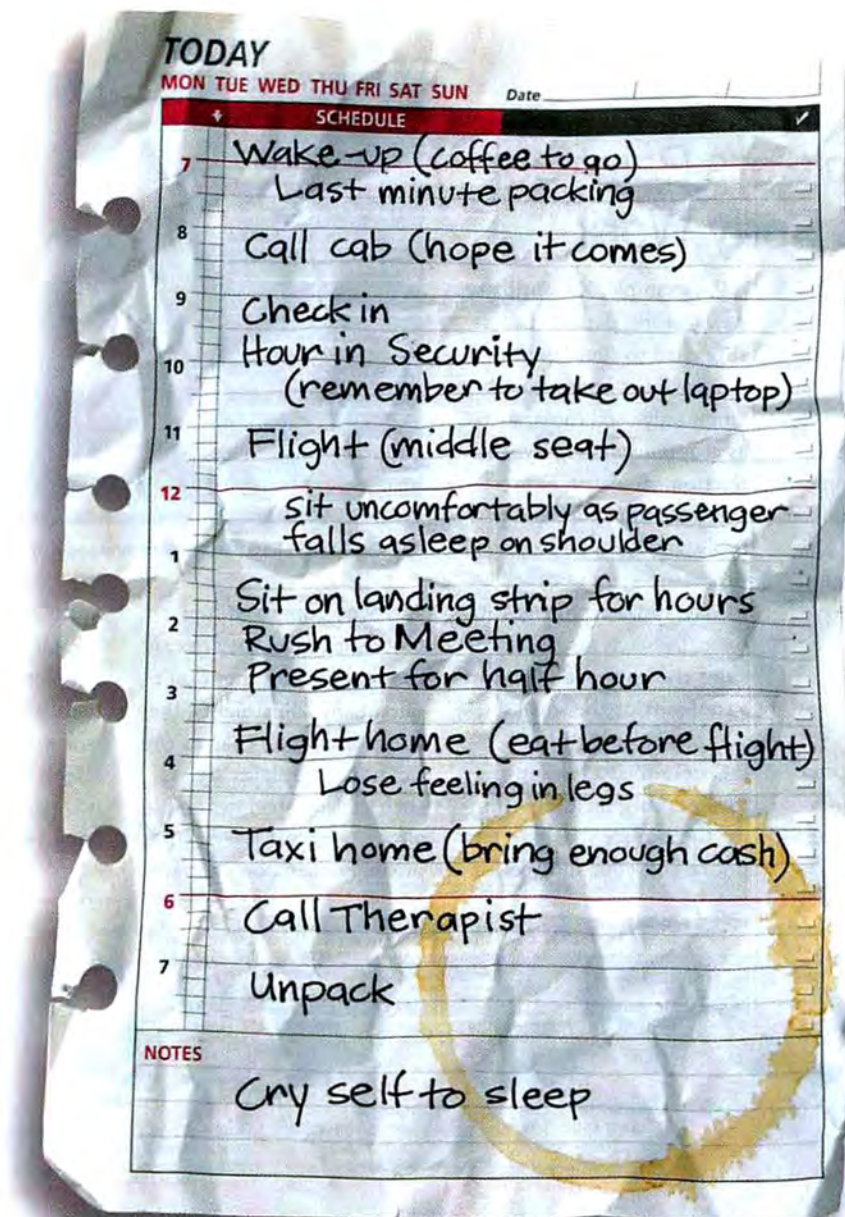 TODAY
MON TUE WED THU FRI SAT SUN Date
SCHEDULE
7 Wake-up (coffee to go)
Last minute packing
8
Call cab (hope it comes)
9
Check in
Hour in Security
10
(remember to take out laptop)
11
Flight (middle seat)
12
sit uncomfortably as passenger
falls asleep on shoulder
1
Sit on landing strip for hours
2
Rush to Meeting
Present for half hour
3
Flight home (eat before flight)
4
Lose feeling in legs
5
Taxi home (bring enough cash)
6
Call Therapist
7
Unpack
NOTES
Cry self to sleep